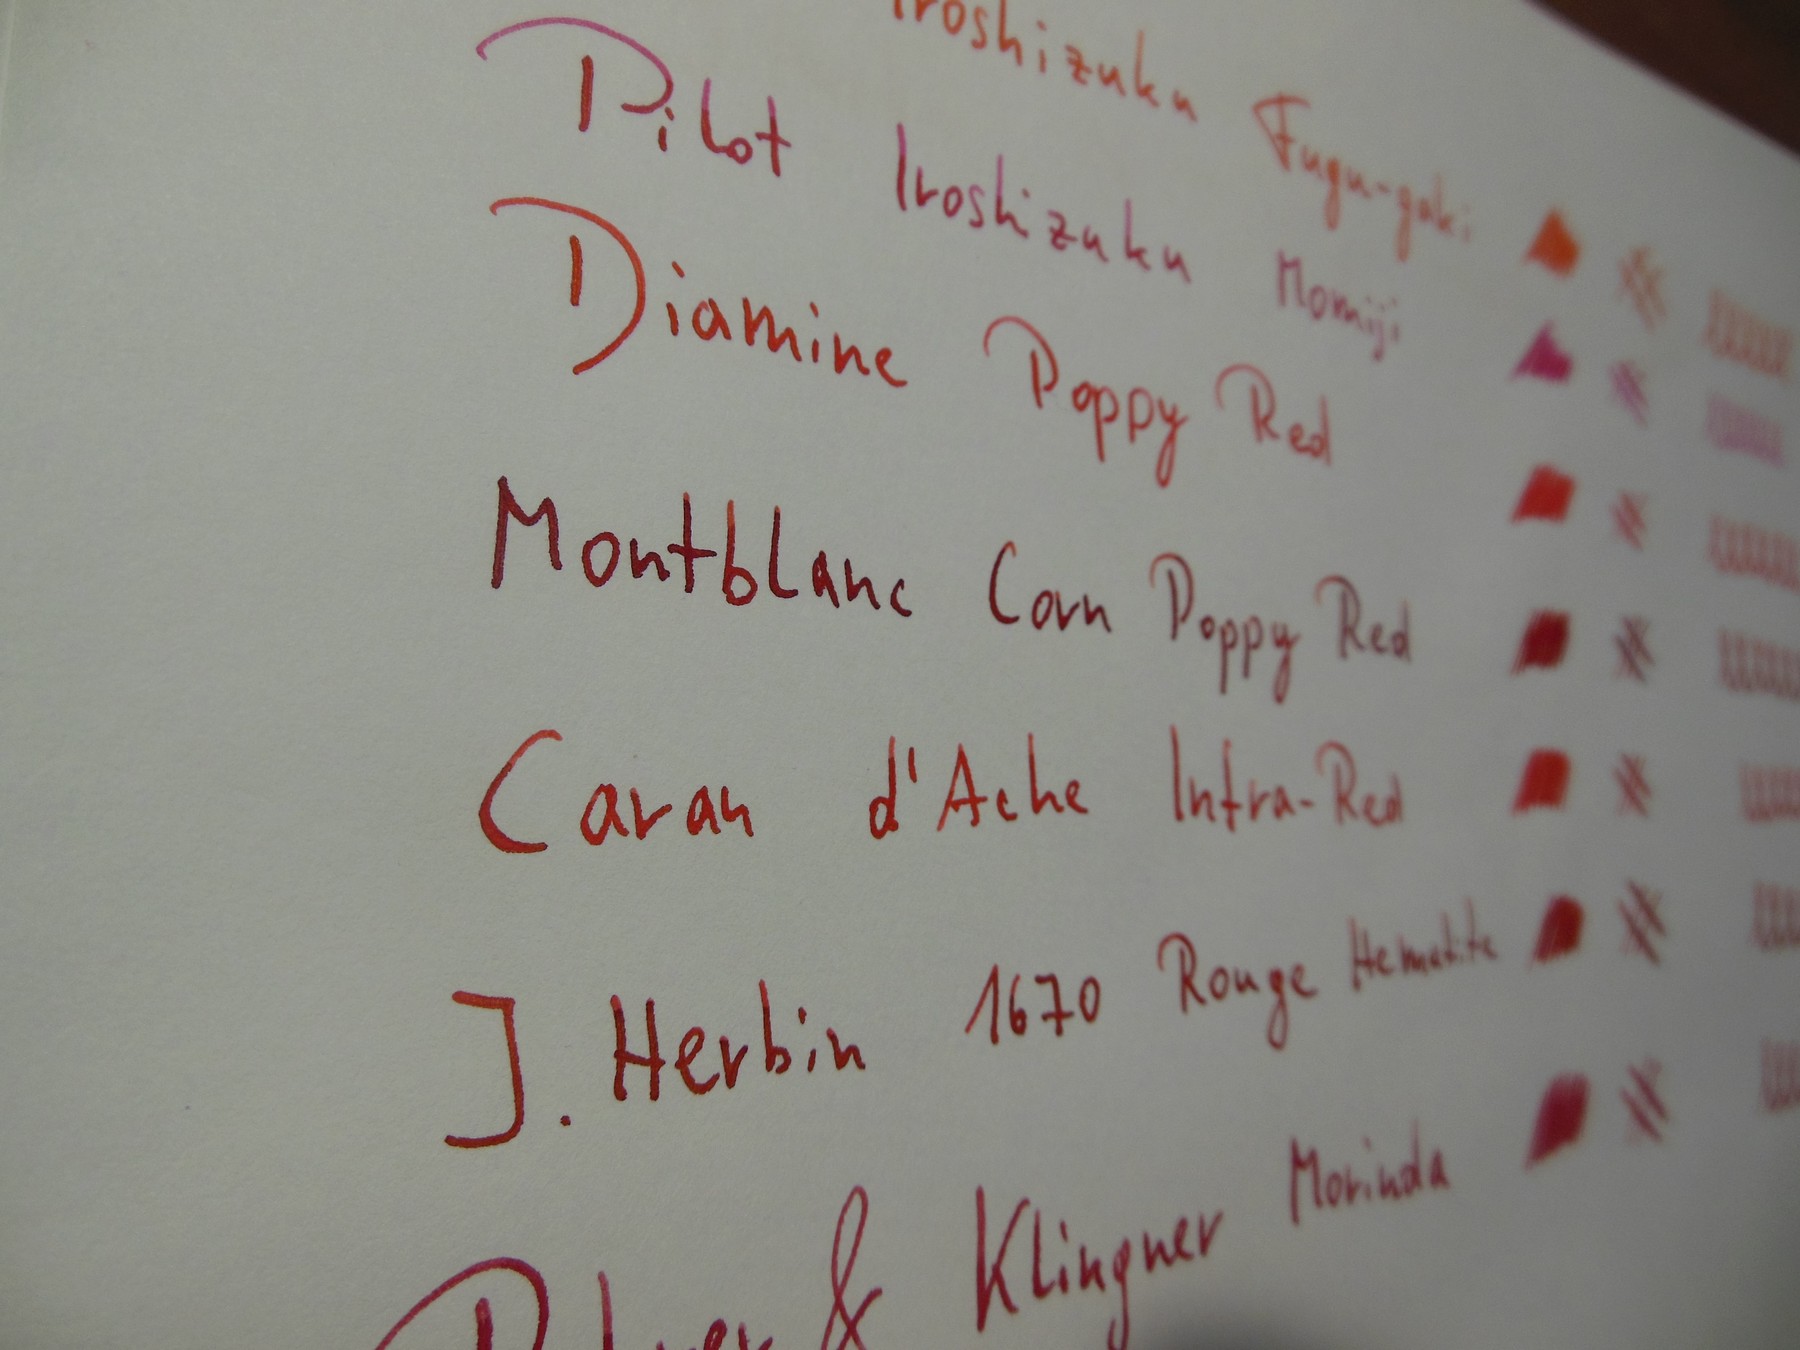 Iroshizuku Fuyu-gaki
Pilot Iroshizuku Momiji
Diamine Poppy Red
Montblanc Corn Poppy Red
Caran d'Ache Infra-Red
J. Herbin 1670 Rouge Hematite
& Klingner Morinda